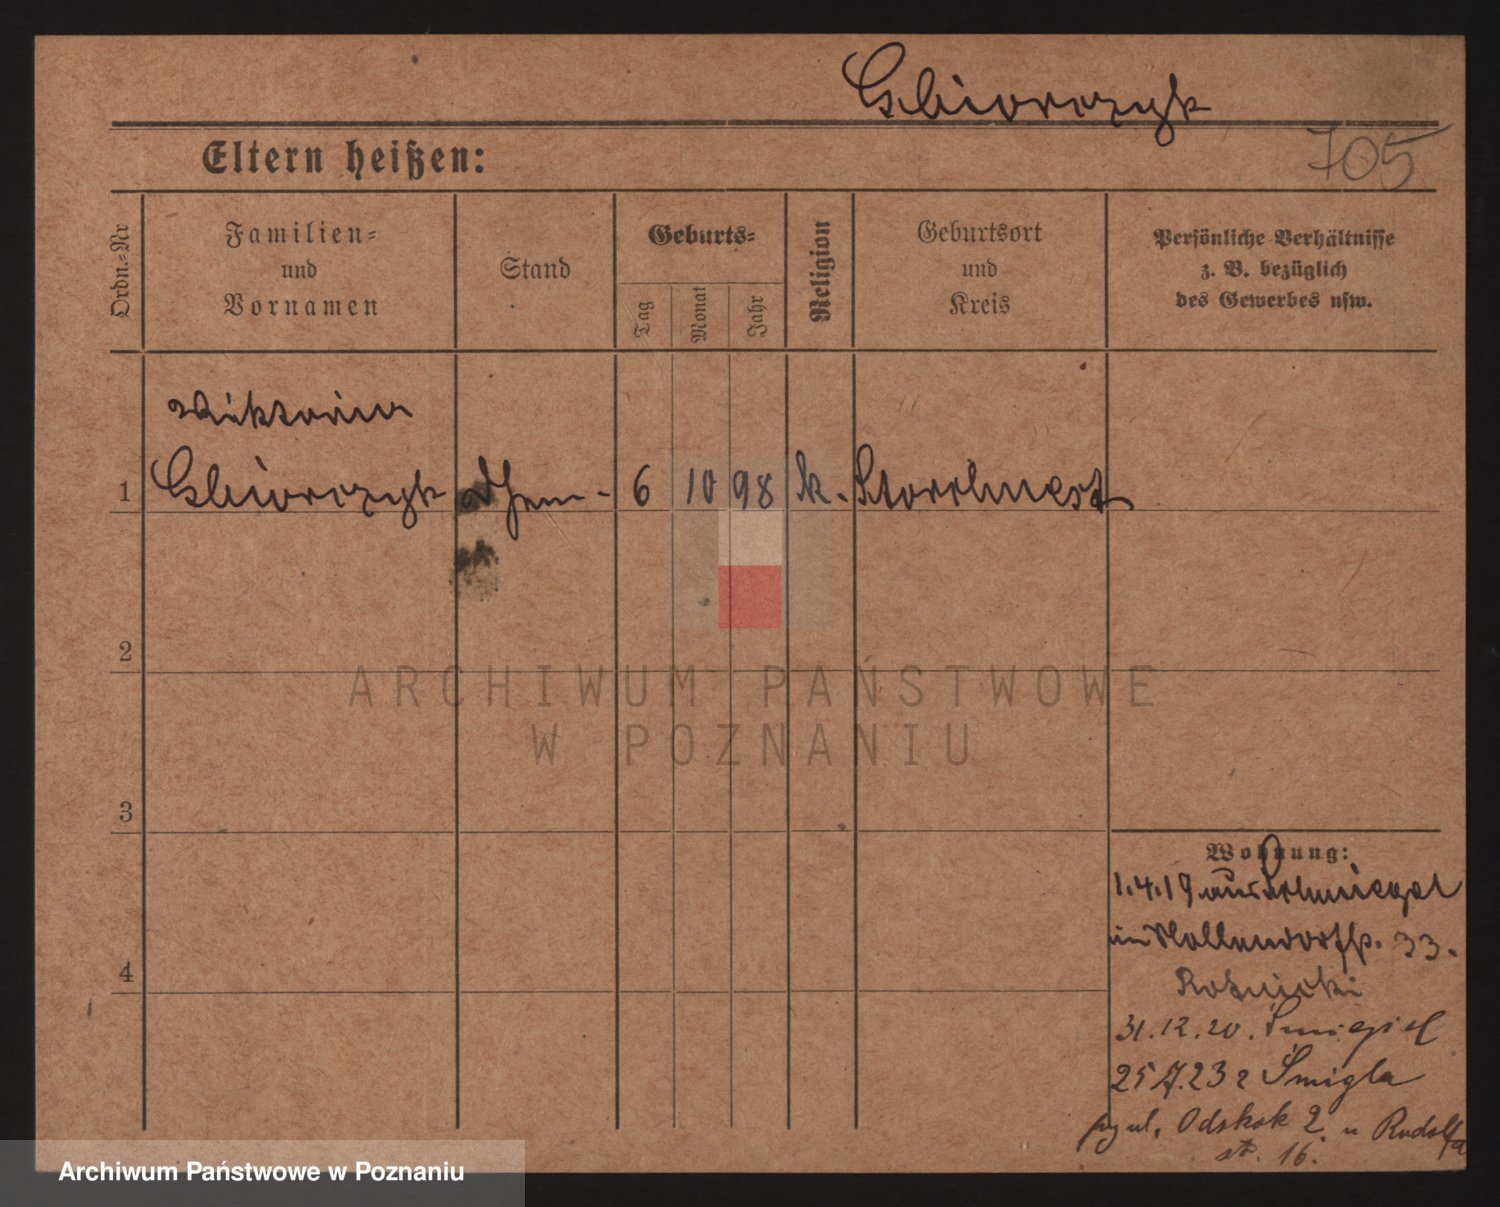 Gbiorczyk
705
Eltern heißen:
Ordn.-Nr
Familien-
und
Vornamen
Stand
Geburts-
Tag
Monat
Jahr
Religion
Geburtsort
und
Kreis
Persönliche Verhältnisse
z. B. bezüglich
des Gewerbes usw.
Wiktoria
1 Gbiorczyk 6 10 98 k. Storchnest
2
3
4
Wohnung:
1.4.19 aus Schmiegel
in Nollendorfstr. 33.
Rotnicki
31.12.20. Śmigiel
25.7.23 z Śmigla
ul. Odskok 2 u Rudolfa
st. 16.
ARCHIWUM PAŃSTWOWE
W POZNANIU
Archiwum Państwowe w Poznaniu